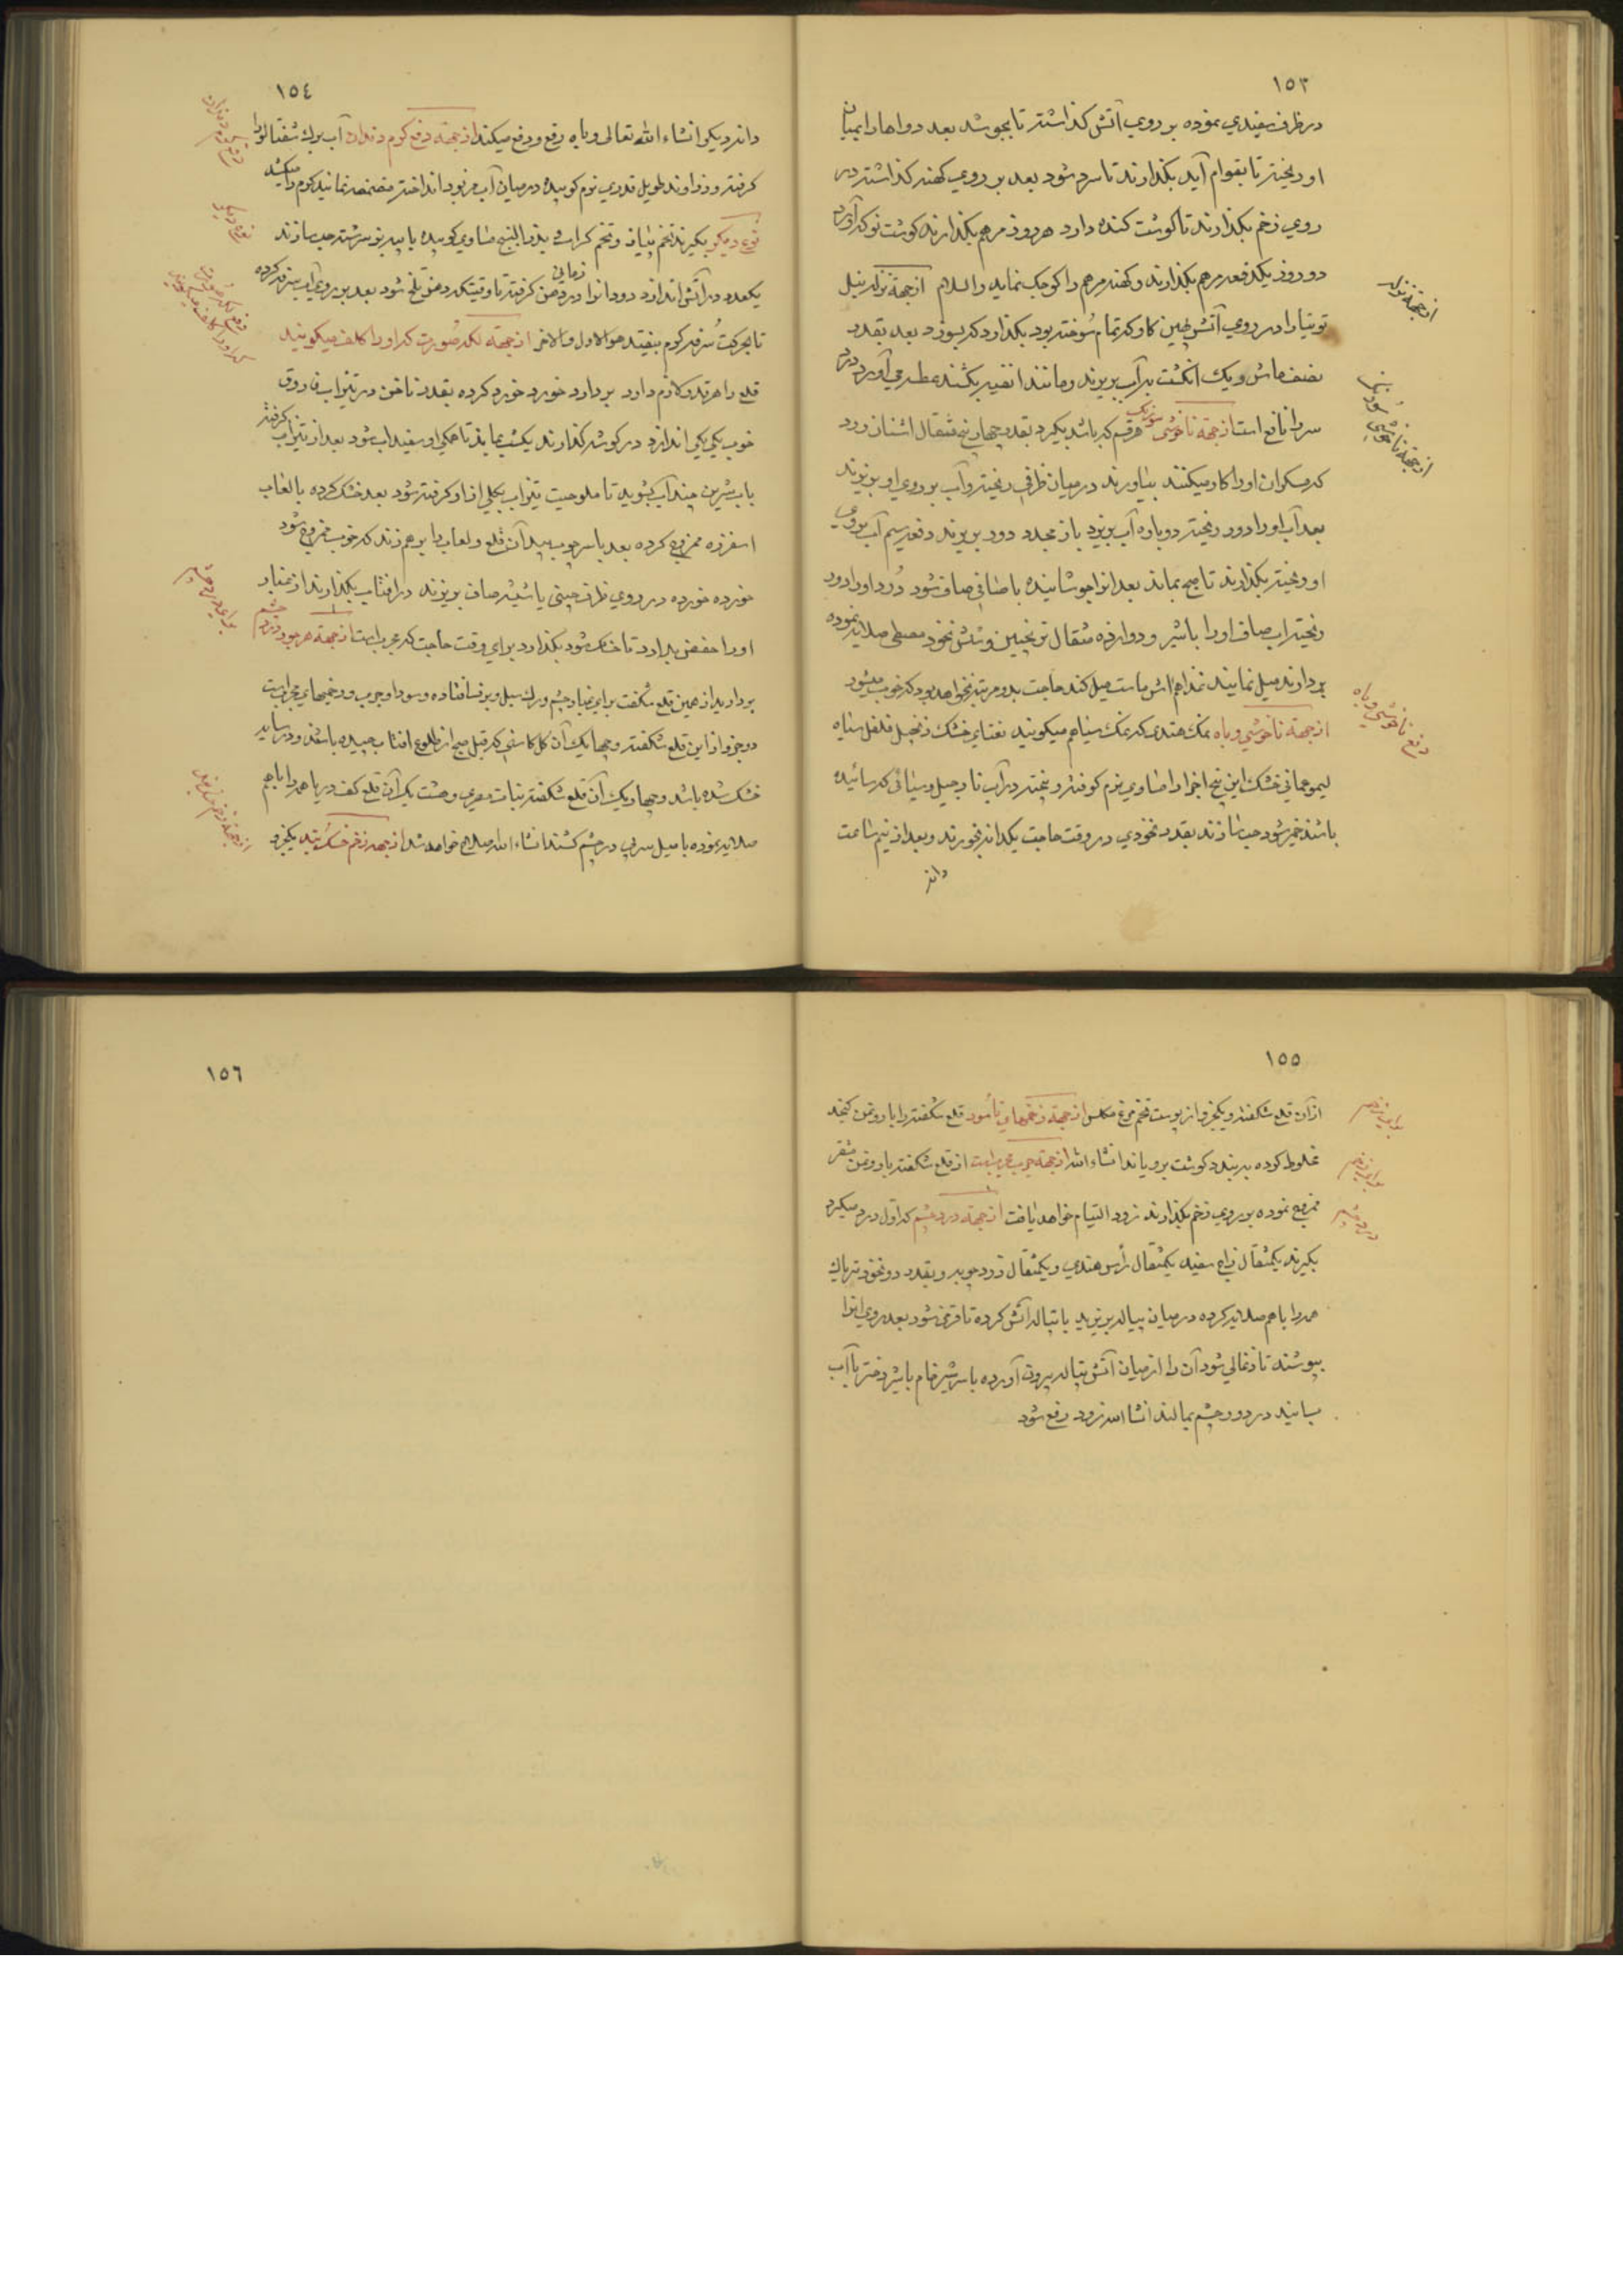 ١٥٣
در ظرف سفیدي نموده بر روي آتش کذاشته تا بجوشد بعد دواها را بمیان
او ریخته تا بقوام آید بکذارند تا سرد شود بعد بر روي کهنه کذاشته در
روي زخم بکذارند تا کوشت کنده دارد هر روز مرهم بکذارند کوشت نو که آورد
دو روز یکدفعه مرهم بکذارند و کهنه مرهم را کوچک نماید والسلام از جهة نزله نیل
توتیا را در روي آتش کاو که تمام سوخته بود بکذارد که بسوزد بعد بقدر
نصف ماش و یک انکشت بر آب بریزند و مانند انفیه بکشند عطسه مي آورد درد
سر را نافع است از جهة ناخوشی سوزنک هر قسم که باشد بکیرد بقدر چهار پنج مثقال اشنان ورد
که مسکران او را کار میکنند بیاورند در میان ظرفي ریخته و آب بر روي او بریزند
بعد آب او را دور ریخته دوباره آب بریزد باز مجدد دور بریزند دفعه سیم آب بروي
او ریخته بکذارند تا صبح بماند بعد انرا جوشانیده با صافي صاف شود درد او را دور
ریخته آب صاف او را با شیر و دوازده مثقال ترنجبین و شش نخود مصطکی صلایه نموده
بردارند میل نمایند نهار هم آش ماست میل کند حاجت بدو مرتبه نخواهد بود که خوب میشود
از جهة ناخوشي وباه نمک هندی که نمک سیاهم میکویند نعناي خشک زنجبیل فلفل سیاه
لیمو عماني خشک این پنج اجزا را مساوي نرم کوفته و بیخته در آب نارجیل دریائی که سائیده
باشند خمیر شود حب سازند بقدر نخودي در وقت حاجت یکدانه بخورند و بعد از نیم ساعت
دانه
از جهة نزله
از جهة ناخوشی سوزنک
دفع ناخوشي وباه
١٥٤
دانه دیکر انشاء الله تعالی وباه رفع و دفع میکند از جهة دفع کرم دندان آب برك شفتالو را
کرفته و زراوند طویل قدري نرم کوبیده در میان آب مزبور انداخته مضمضه نمایند کرم را میکشد
نوع دیکر بکیرند تخم پیاز و تخم کراث و بذر البنج مساوي کوبیده با پیه بز سرشته حب سازند
یکعدد در آتش اندازد دود انرا در دهن کرفته زمانی تا وقتیکه دهن تلخ شود بعد بر روي آب سرفه کرده
تا بحرکت سرفه کرم بیفتد هو الاول والاخر از جهة لکه صورت که او را کلف میکویند
قلع را هر قدر که لازم دارد بردارد خورد خورد کرده بقدر ناخن در تیزاب فاروق
خوب یکي یکي اندازد در کوشه کذارند یکشب بماند تا همکي او سفید اب شود بعد از تیزاب کرفته
باب شیرین چند آب بشوید تا ملوحیت تیزاب بکلي از او کرفته شود بعد خشک کرده با لعاب
اسفرزه ممزوج کرده بعد با سر چوب بید آن قلع و لعاب را برهم زند که خوب ممزوج شود
خورده خورده در روي ظرف چینی یا شیشه صاف بریزند در افتاب بکذارند از غبار
او را حفظ بدارد تا خشک شود بکذارد براي وقت حاجت که مجرب است از جهة هر جور درد چشم
بردارید از همین قلع شکفته براي غبار چشم ورك سبل
دو جزو از این قلع شکفته و چهار یک آن کل کاسنی که قبل صبح از طلوع افتاب چیده باشند و در سایه
خشک شده باشد و چهار یک آن قلع شکفته نبات مصري و هشت یک آن قلع کف دریا همه را با هم
صلایه نموده با میل سربی در چشم کشند انشاء الله صلاح خواهد شد از جهة زخم خشک بند یکجزو
دفع کرم دندان
نوع دیکر
براي درد چشم
١٥٥
از آن قلع شکفته و یکجزو از پوست تخم مرغ مکلس از جهة زخمهاي ناسور قلع شکفته را با روغن کنجد
مخلوط کرده ببندد کوشت برویاند انشاء الله از جهة جرب مجرب است از قلع شکفته با روغن
ممزوج نموده بر روي زخم بکذارند زود التیام خواهد یافت از جهة درد چشم که اول درد میکیرد
بکیرند یکمثقال زاج سفید یکمثقال رأس هندي و یکمثقال زرد چوبه و بقدر دو نخود تریاك
همه را با هم صلایه کرده در میان پیاله بریزید با تپاله آتش کرده تا قرمز شود بعد روي انرا
بپوشند تا ذغالي شود آن را از میان آتش تپاله بیرون آورده با سر شیر خام یا شیر دختر یا آب
بسایند در دور چشم بمالند انشا الله زود رفع شود
درد چشم
١٥٦